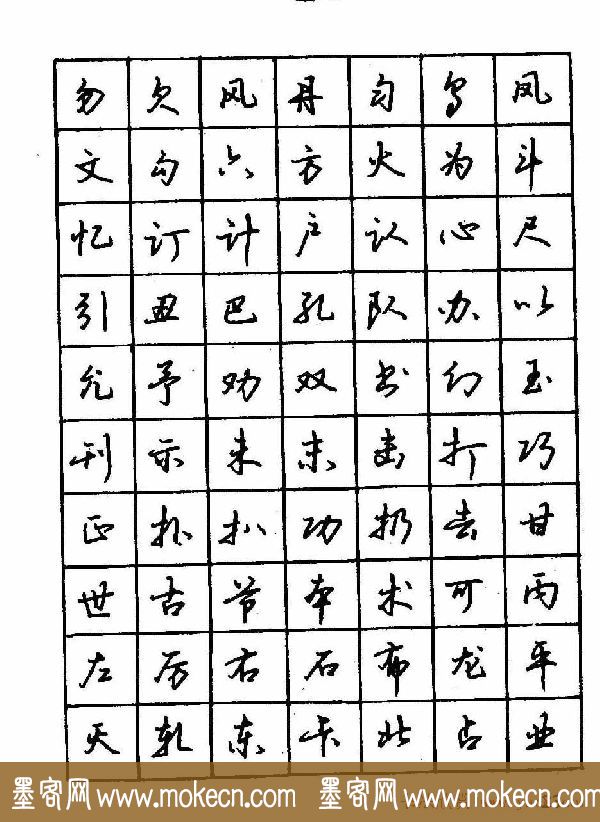 勿欠风丹匀乌凤
文勾六方火为斗
忆订计户认心尺
引丑巴孔队办以
允予劝双书幻玉
刊示未末击打巧
正扑扒功扔去甘
世古节本术可丙
左厉右石布龙平
灭轧东卡北占业
墨客网 www.mokecn.com 墨客网 www.mokecn.com